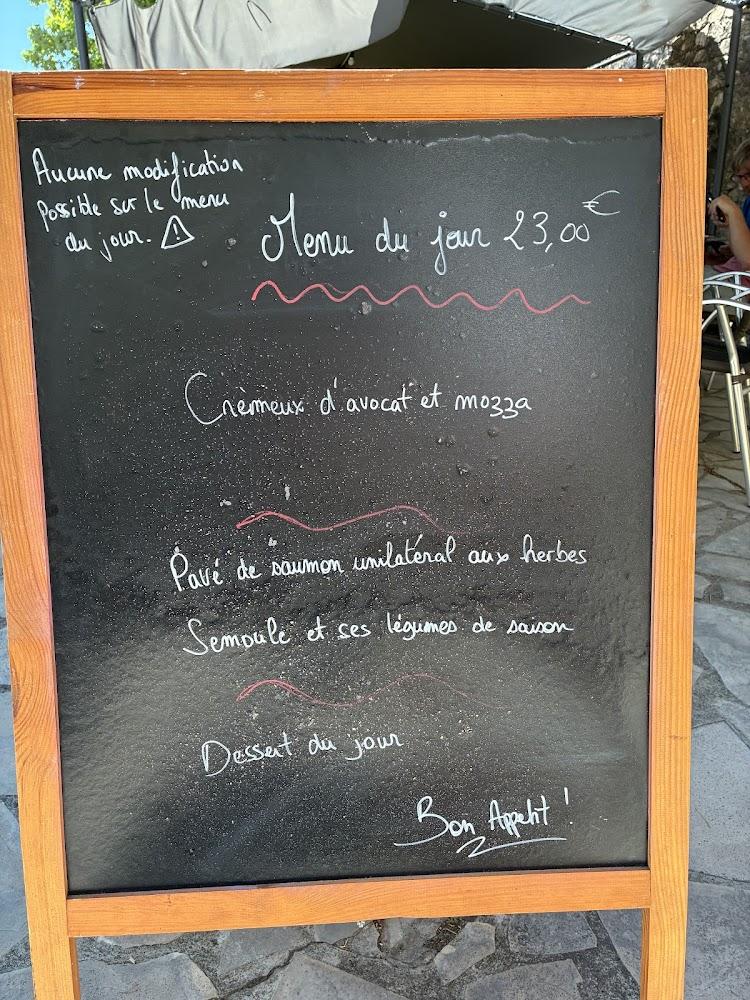 Aucune modification
possible sur le menu
du jour. ⚠
Menu du jour 23,00€
Crèmeux d'avocat et mozza
Pavé de saumon unilatéral aux herbes
Semoule et ses légumes de saison
Dessert du jour
Bon Appetit !